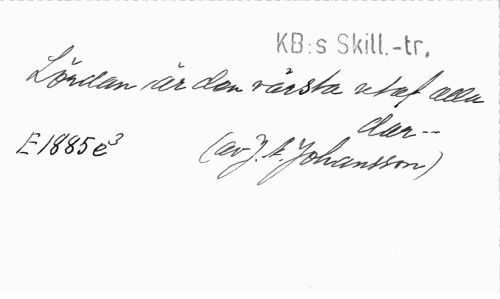 KB:s Skill.-tr.
Lördan är den värsta utaf alla
dar--
E1885e³
(av J. A. Johansson)